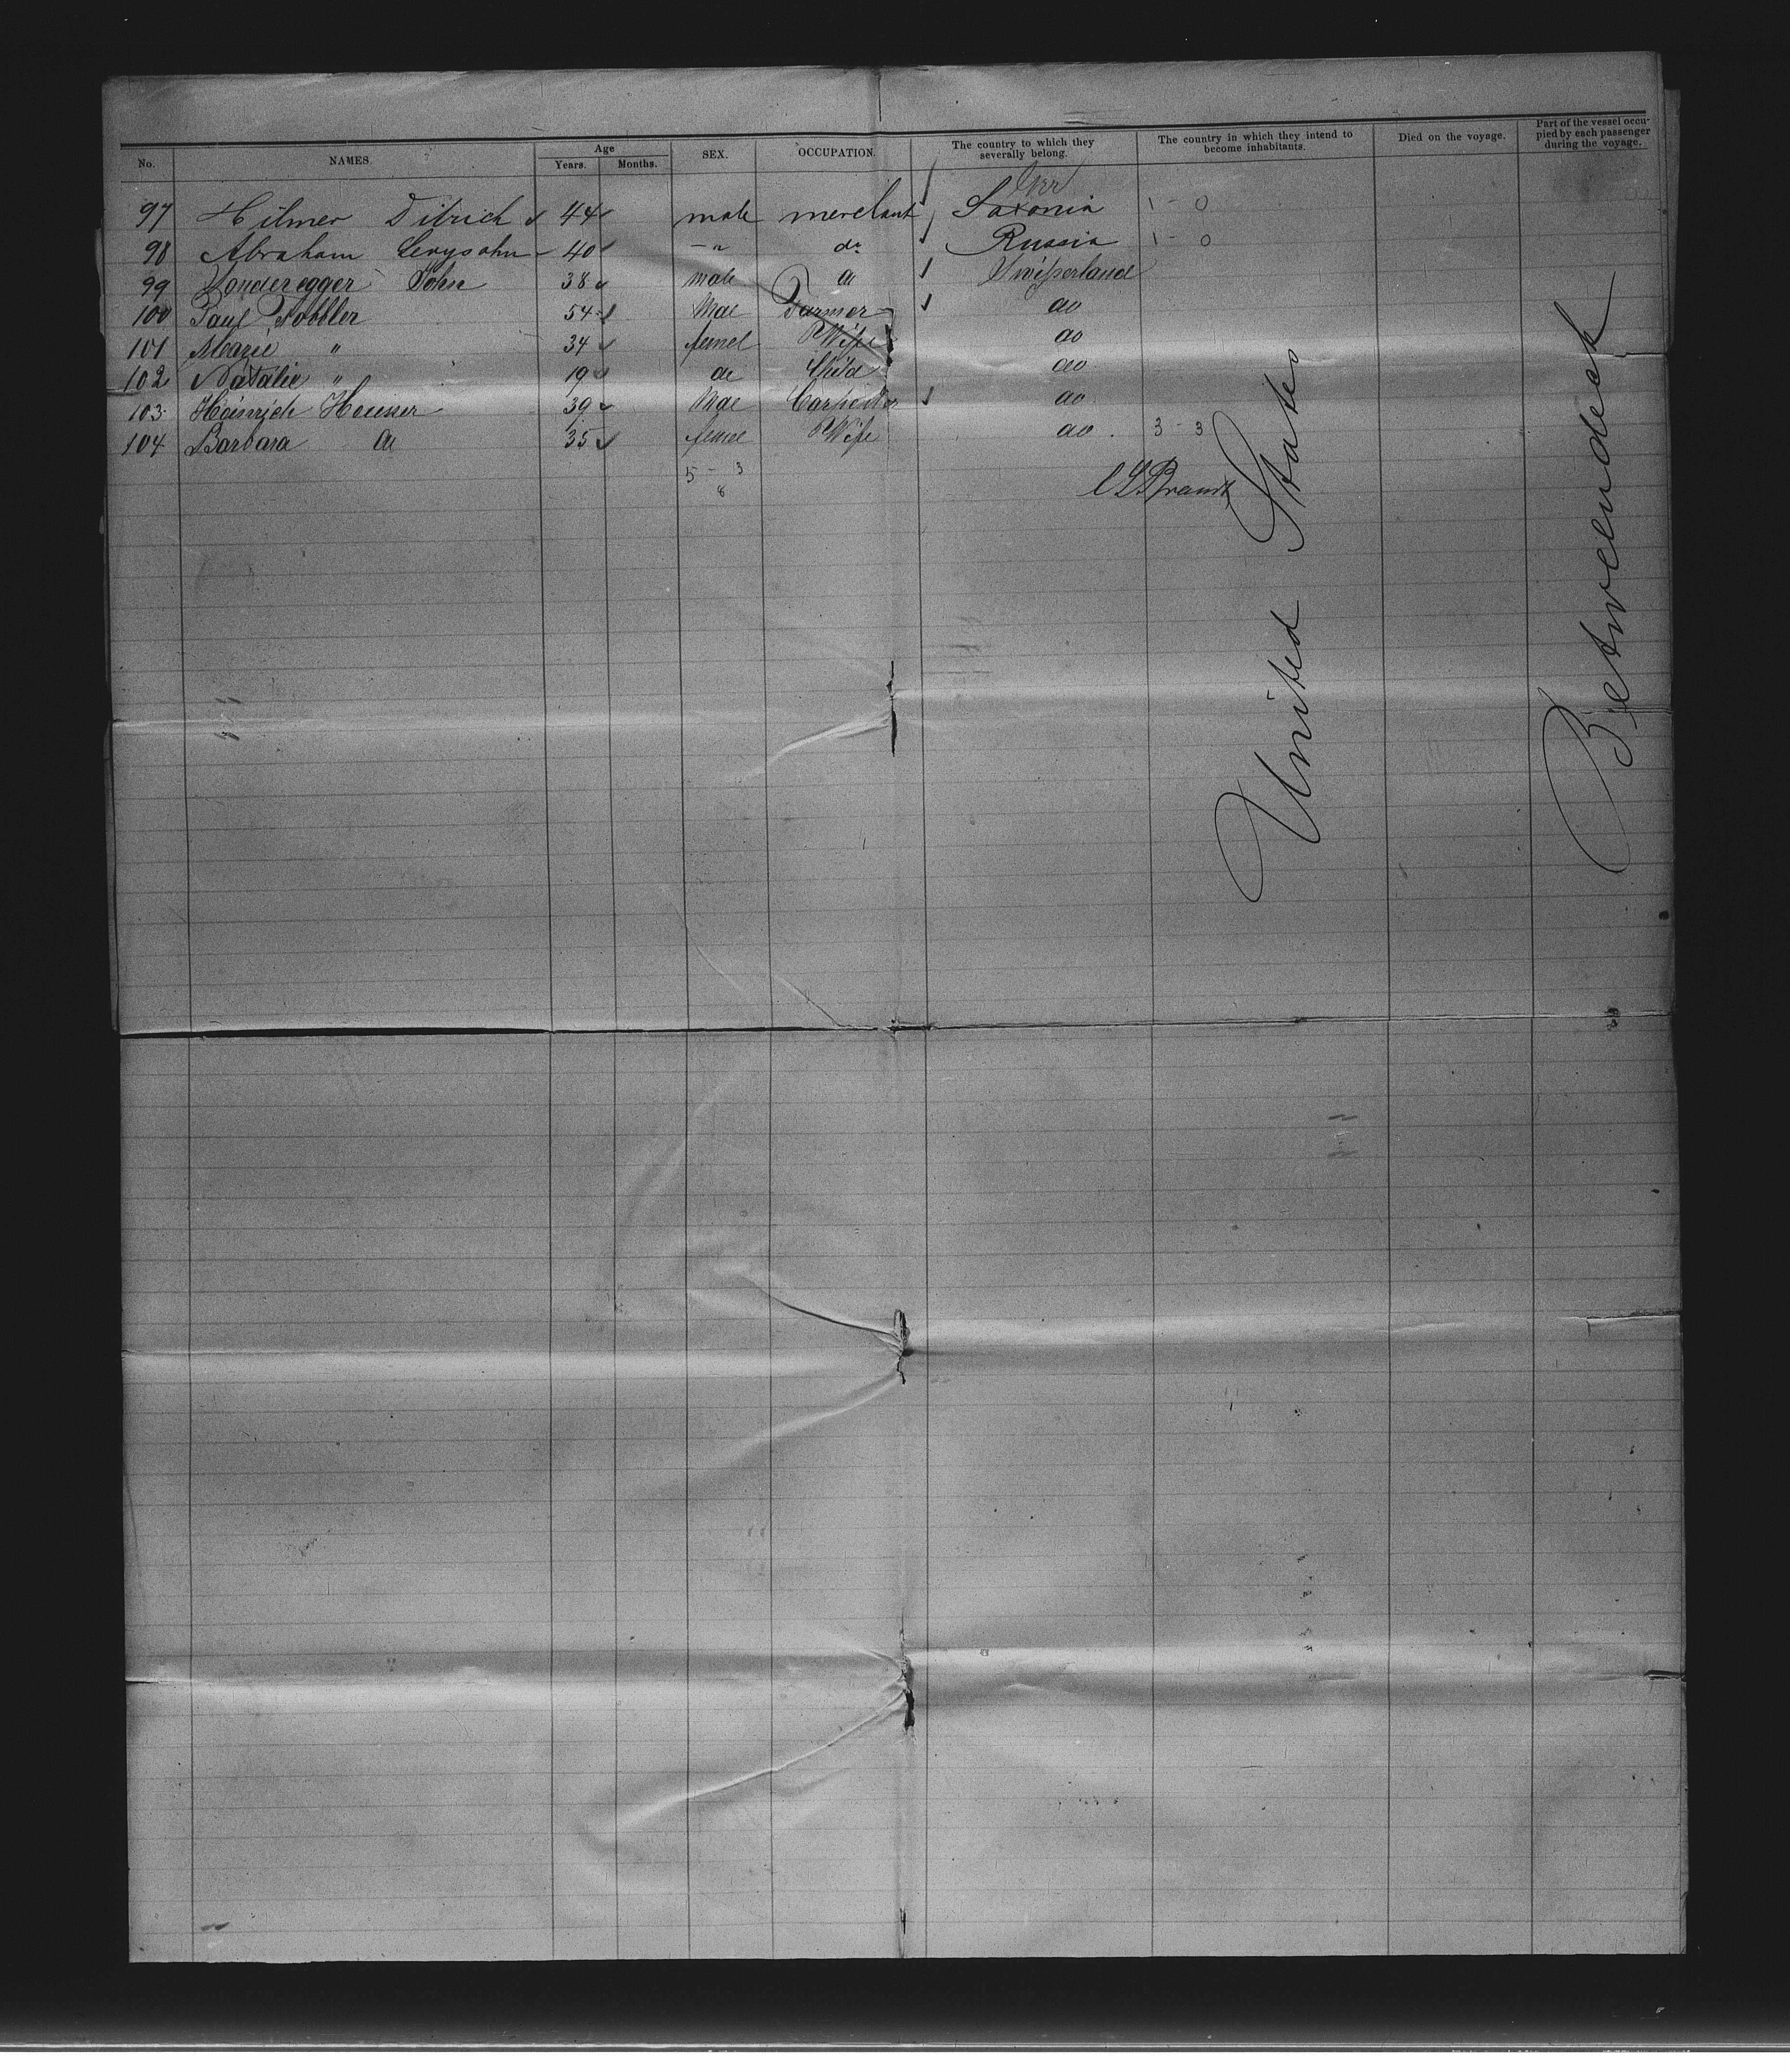 No. NAMES. Age Years. Months. SEX. OCCUPATION. The country to which they severally belong. The country in which they intend to become inhabitants. Died on the voyage. Part of the vessel occupied by each passenger during the voyage.
Ger
97 Hilmer Ditrich 44 male merchant Saxonia 1 - 0
98 Abraham Levysohn 40 - " do Russia 1 - 0
99 Sonderegger John 38 male do Switzerland
100 Paul Tobbler 54 Mal Farmer do
101 Marie " 34 femel Wife do
102 Natalie " 19 do Child do
103 Heinrich Heuser 39 Mal Carpenter do
104 Barbara do 35 femel Wife do 3 - 3
5 - 3
8
C L Brandt
United States
Betweendeck